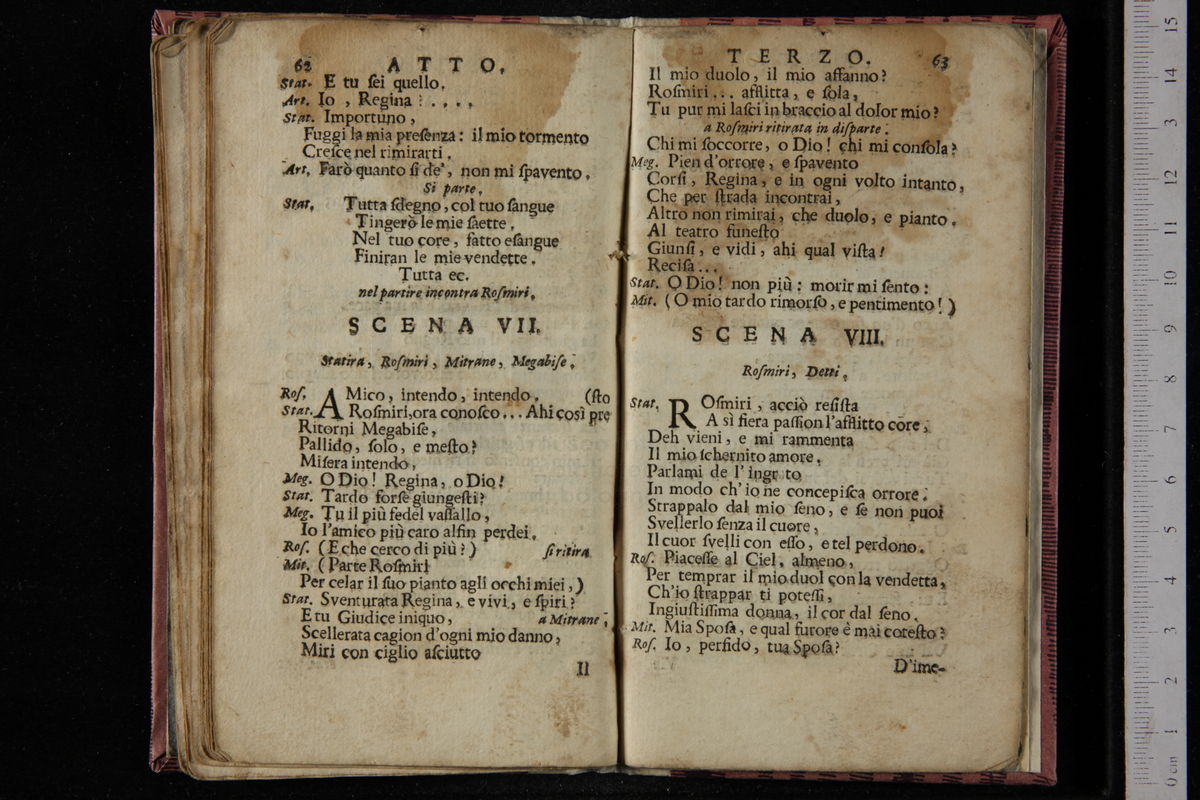 62 ATTO.
Stat. E tu ſei quello.
Art. Io , Regina ? . . . .
Stat. Importuno ,
Fuggi la mia preſenza : il mio tormento
Creſce nel rimirarti .
Art. Farò quanto ſi de' , non mi ſpavento .
Si parte .
Stat. Tutta ſdegno , col tuo ſangue
Tingerò le mie ſaette .
Nel tuo core , fatto eſangue
Finiran le mie vendette .
Tutta ec.
nel partire incontra Roſmiri .
SCENA VII.
Statira , Roſmiri , Mitrane , Megabiſe .
Roſ. AMico , intendo , intendo . (ſto
Stat. Roſmiri, ora conoſco . . . Ahi così pre
Ritorni Megabiſe ,
Pallido , ſolo , e meſto ?
Miſera intendo ,
Meg. O Dio ! Regina , o Dio !
Stat. Tardo forſe giungeſti ?
Meg. Tu il più fedel vaſſallo ,
Io l'amico più caro alfin perdei .
Roſ. ( E che cerco di più ? ) ſi ritira
Mit. ( Parte Roſmiri
Per celar il ſuo pianto agli occhi miei , )
Stat. Sventurata Regina , e vivi , e ſpiri ?
E tu Giudice iniquo , a Mitrane ,
Scellerata cagion d'ogni mio danno ,
Miri con ciglio aſciutto
Il
TERZO. 63
Il mio duolo , il mio affanno ?
Roſmiri . . . afflitta , e ſola ,
Tu pur mi laſci in braccio al dolor mio ?
a Roſmiri ritirata in diſparte .
Chi mi ſoccorre , o Dio ! chi mi conſola ?
Meg. Pien d'orrore , e ſpavento
Corſi , Regina , e in ogni volto intanto ,
Che per ſtrada incontrai ,
Altro non rimirai , che duolo , e pianto .
Al teatro funeſto
Giunſi , e vidi , ahi qual viſta !
Reciſa . . .
Stat. O Dio ! non più : morir mi ſento :
Mit. ( O mio tardo rimorſo , e pentimento ! )
SCENA VIII.
Roſmiri , Detti .
Stat. ROſmiri , acciò reſiſta
A sì fiera paſſion l'afflitto core ,
Deh vieni , e mi rammenta
Il mio ſchernito amore .
Parlami de l' ingr to
In modo ch' io ne concepiſca orrore .
Strappalo dal mio ſeno , e ſe non puoi
Svellerlo ſenza il cuore ,
Il cuor ſvelli con eſſo , e tel perdono .
Roſ. Piaceſſe al Ciel , almeno ,
Per temprar il mio duol con la vendetta ,
Ch'io ſtrappar ti poteſſi ,
Ingiuſtiſſima donna , il cor dal ſeno .
Mit. Mia Spoſa , e qual furore è mai coteſto ?
Roſ. Io , perfido , tua Spoſa ?
D'ime-
0 cm 1 2 3 4 5 6 7 8 9 10 11 12 3 14 15